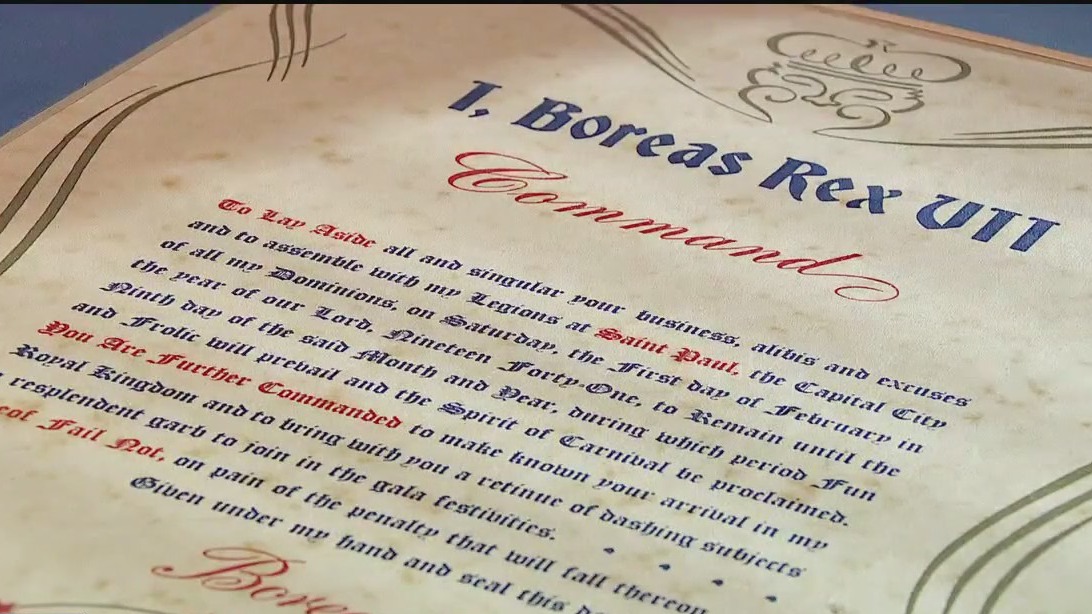 I, Boreas Rex VII
Command
To Lay Aside all and singular your business, alibis and excuses
and to assemble with my Legions at Saint Paul, the Capital City
of all my Dominions, on Saturday, the First day of February in
the year of our Lord, Nineteen Forty-One, to Remain until the
Ninth day of the said Month and Year, during which period Fun
and Frolic will prevail and the Spirit of Carnival be proclaimed.
You Are Further Commanded to make known your arrival in my
Royal Kingdom and to bring with you a retinue of dashing subjects
resplendent garb to join in the gala festivities.
eof Fail Not, on pain of the penalty that will fall thereon
Given under my hand and seal this
Bore